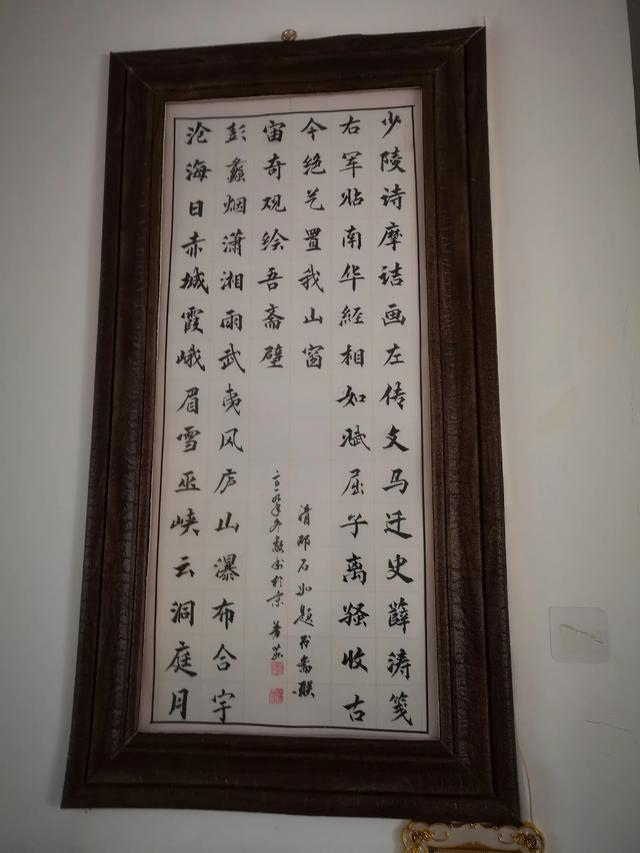 少陵诗摩诘画左传文马迁史薛涛笺
右军帖南华経相如赋屈子离骚收古
今绝艺置我山窗
沧海日赤城霞峨眉雪巫峡云洞庭月
彭蠡烟潇湘雨武夷风庐山瀑布合宇
宙奇观绘吾斋壁
清邓石如题书斋联
年冬敬书於京